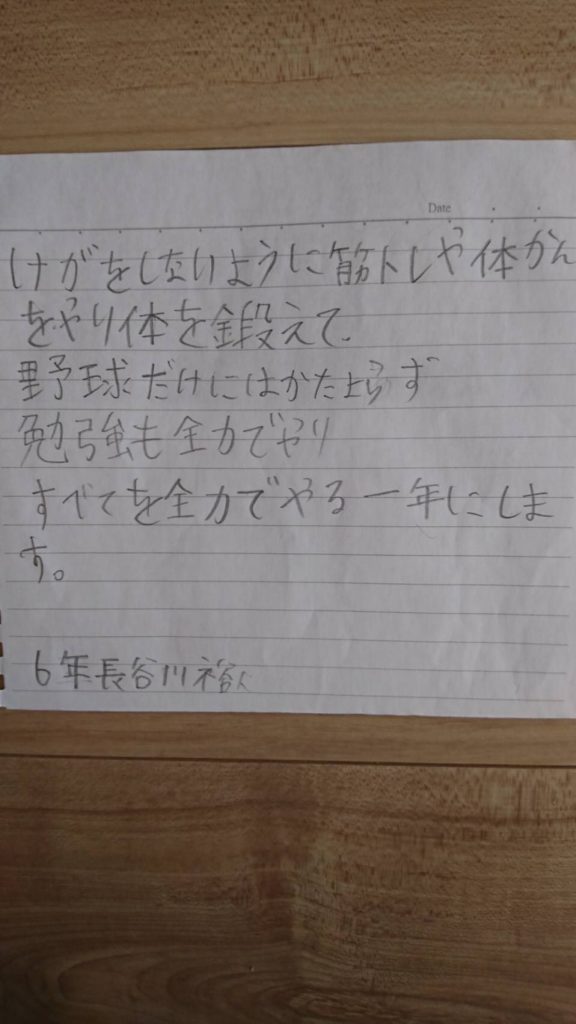 Date
けがをしないように筋トレや体かん
をやり体を鍛えて、
野球だけにはかたよらず
勉強も全力でやり
すべてを全力でやる一年にしま
す。
6年長谷川裕